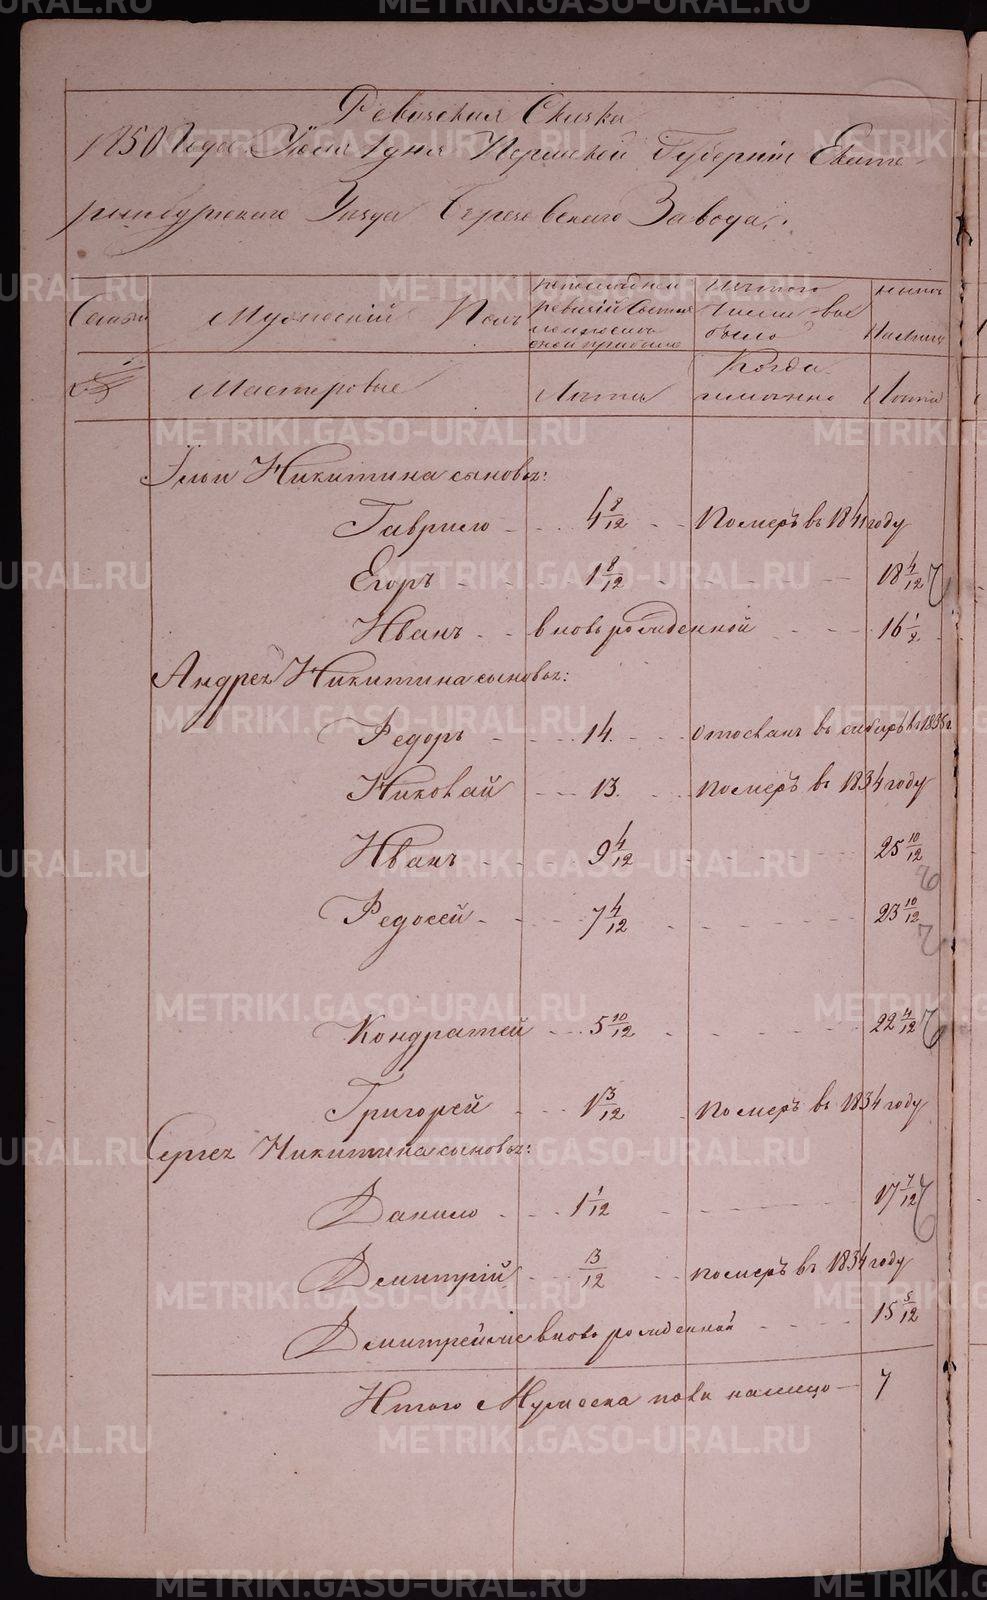 Ревизская Сказка
1850 Года Июля 1 дня Пермской Губернiи Екате-
ринбургскаго Уезда Березовскаго Завода.
Семьи
Мужеский Полъ
по последней ревизiй Состоя
ло и после
оной прибыло
Изъ того
числа вы
было
ныне
На лицо
Мастеровые
Лета
Когда
именно
Лета
Ильи Никитина сыновья:
Гаврило 4 8/12 Померъ въ 1841 году
Егоръ 1 8/12 18 4/12
Иванъ вновь рожденной 16 1/2
Андрея Никитина сыновья:
Федоръ 14 Отосланъ въ сибирь въ 1835 г.
Николай 13 Померъ въ 1834 году
Иванъ 9 4/12 25 10/12
Федосей 7 4/12 23 10/12
Кондратей 5 10/12 22 4/12
Григорей 1 3/12 Померъ въ 1834 году
Сергея Никитина сыновья:
Данило 1 1/12 17 7/12
Дмитрiй 3/12 померъ въ 1834 году
Дмитрей же вновь рожденной 15 5/12
Итого Мужеска пола налицо 7
METRIKI.GASO-URAL.RU